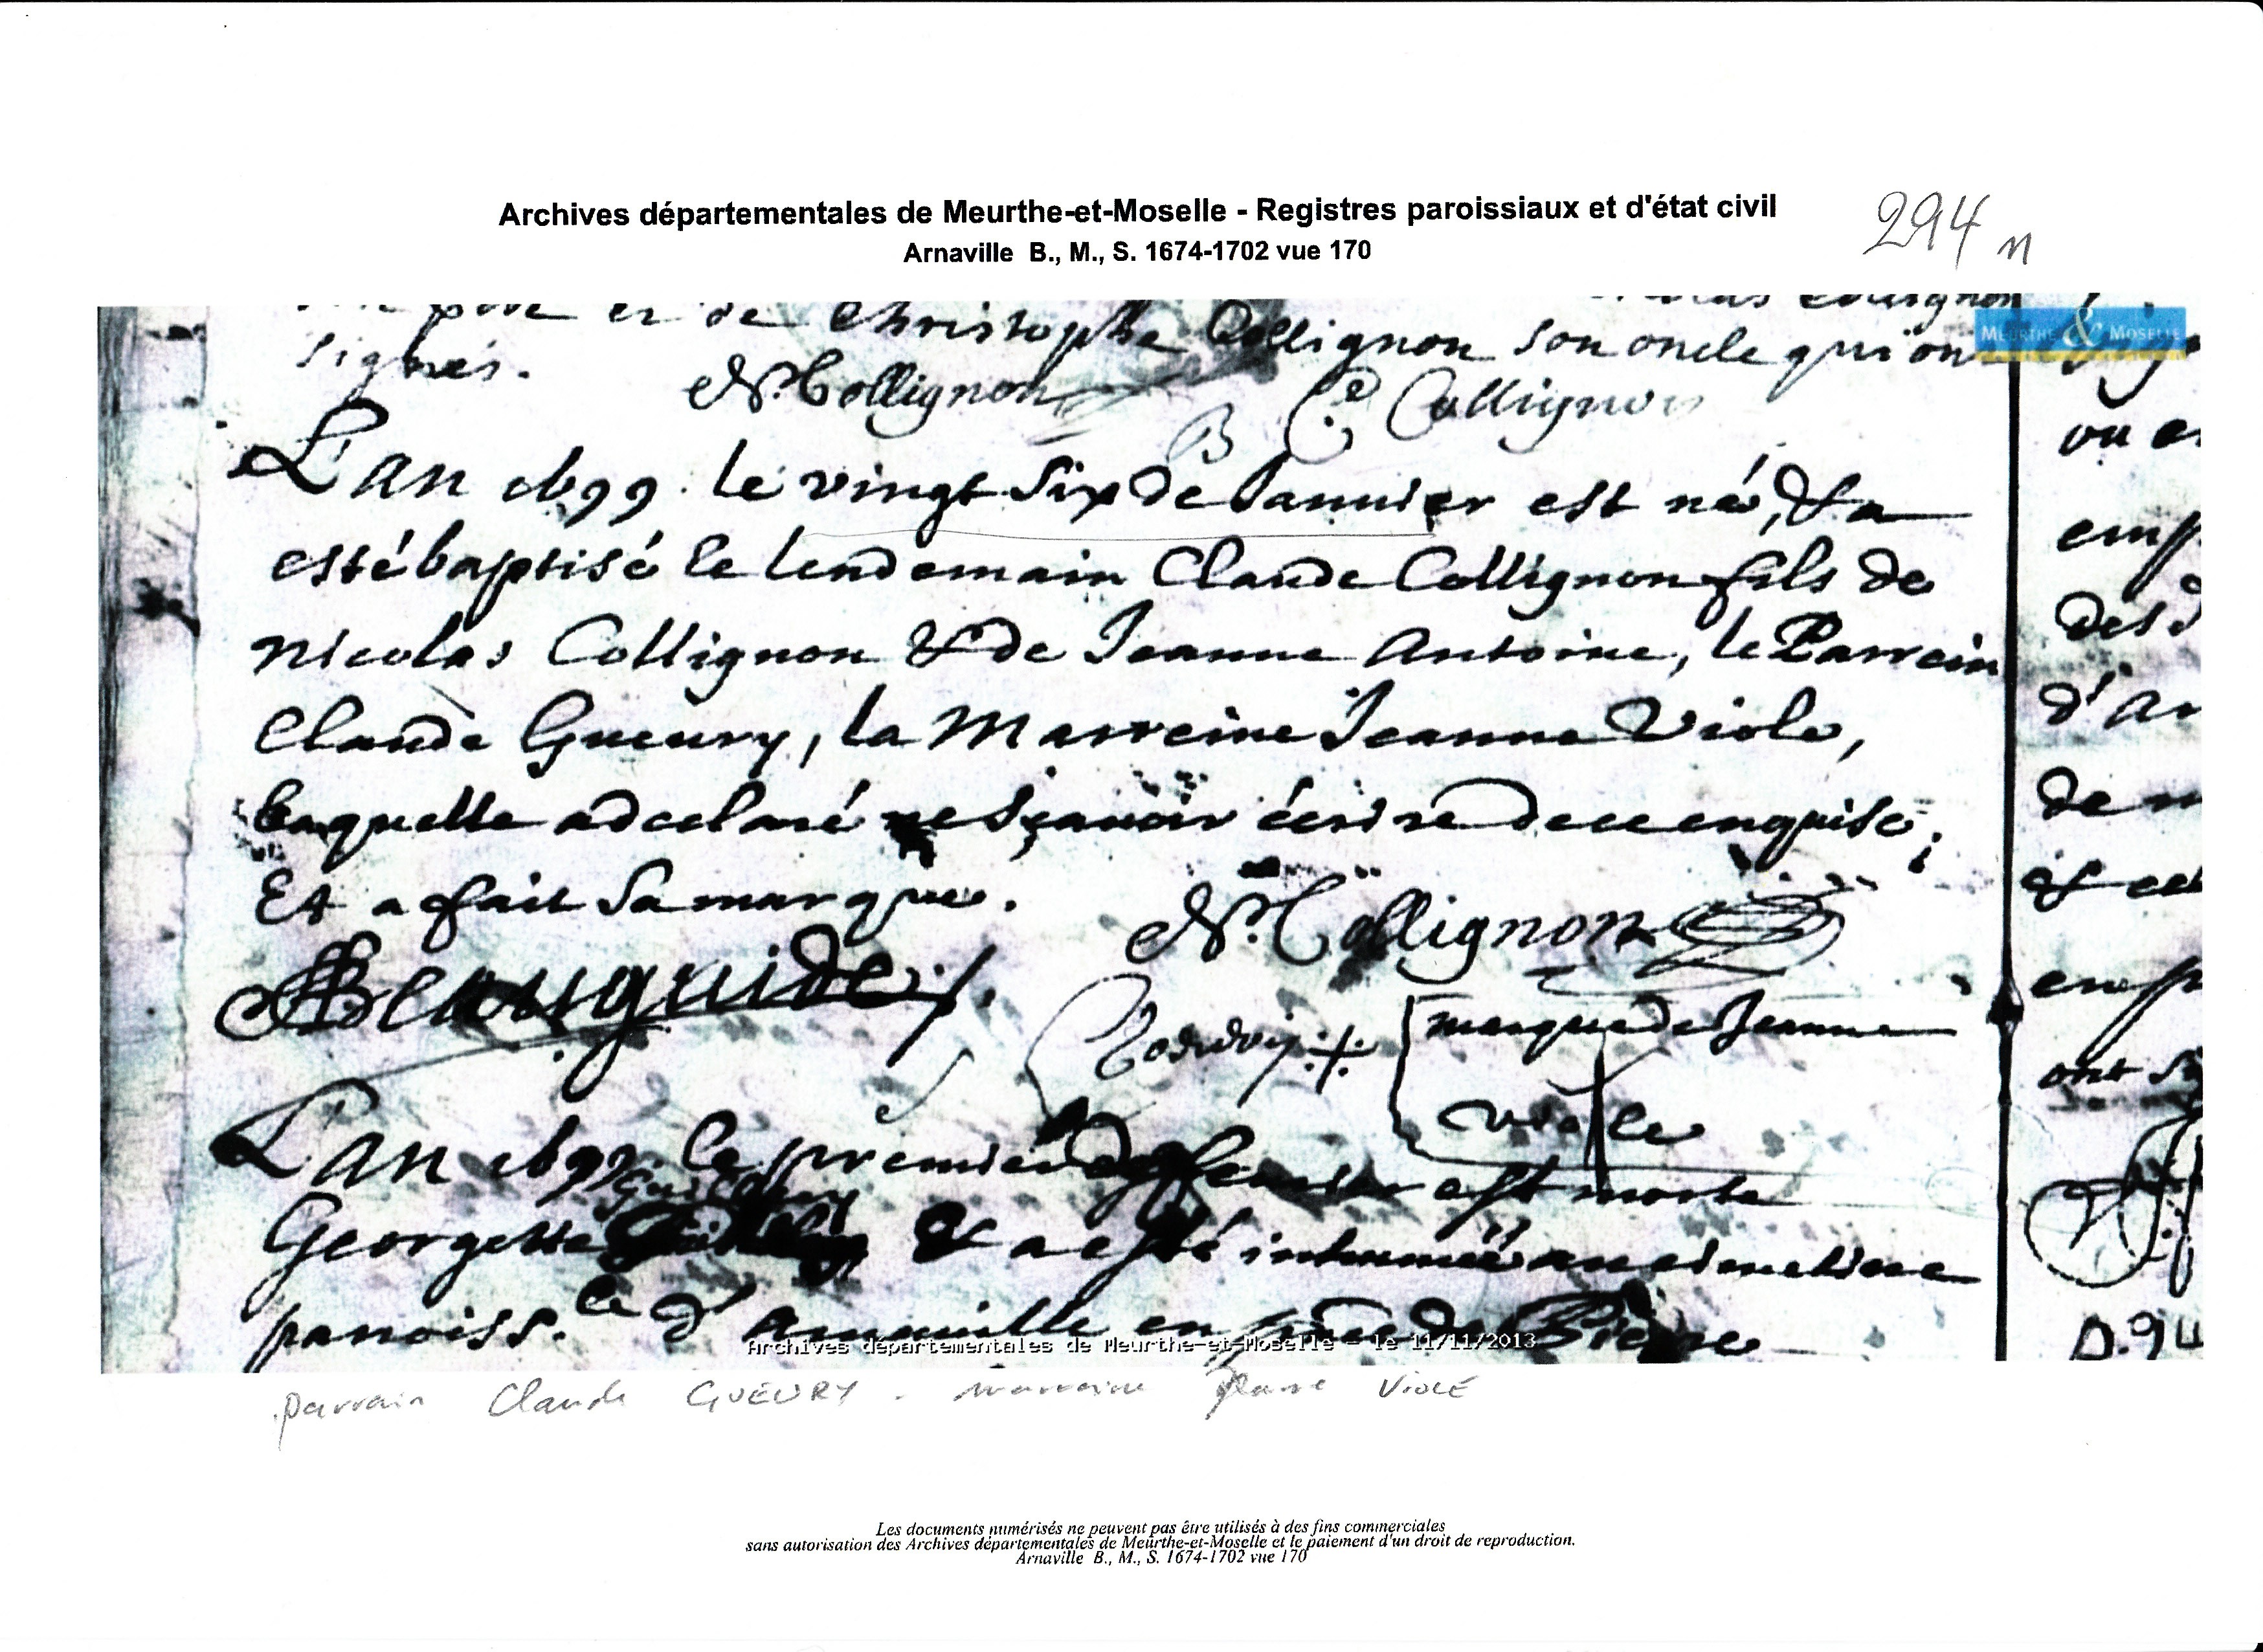 Archives départementales de Meurthe-et-Moselle - Registres paroissiaux et d'état civil
Arnaville B., M., S. 1674-1702 vue 170
294 n
MEURTHE & MOSELLE
et de Christophe Collignon son oncle qui on
signés.
N. Collignon
C Collignon
L'an 1699. le vingt six de Januier est né, & a
esté baptisé le lendemain Claude Collignon fils de
Nicolas Collignon & de Jeanne Antoine, le Parrein
Claude Gueury, la Marreine Jeanne Viole,
laquelle a declaré ne sçauoir écrire de ce enquise;
Et a fait sa marque.
N. Collignon
Beauguide
marque de Jeanne
viole
L'an 1699. le premier de feurier est morte
Georgette & a esté inhumée au cimetiere
paroiss.le d'Arnauille en
Archives départementales de Meurthe-et-Moselle - le 11/11/2013
ou
emp
des
d'Ar
de
& ce
ont
parrain Claude GUEURY . marraine Jeanne VIOLE
Les documents numérisés ne peuvent pas être utilisés à des fins commerciales
sans autorisation des Archives départementales de Meurthe-et-Moselle et le paiement d'un droit de reproduction.
Arnaville B., M., S. 1674-1702 vue 170